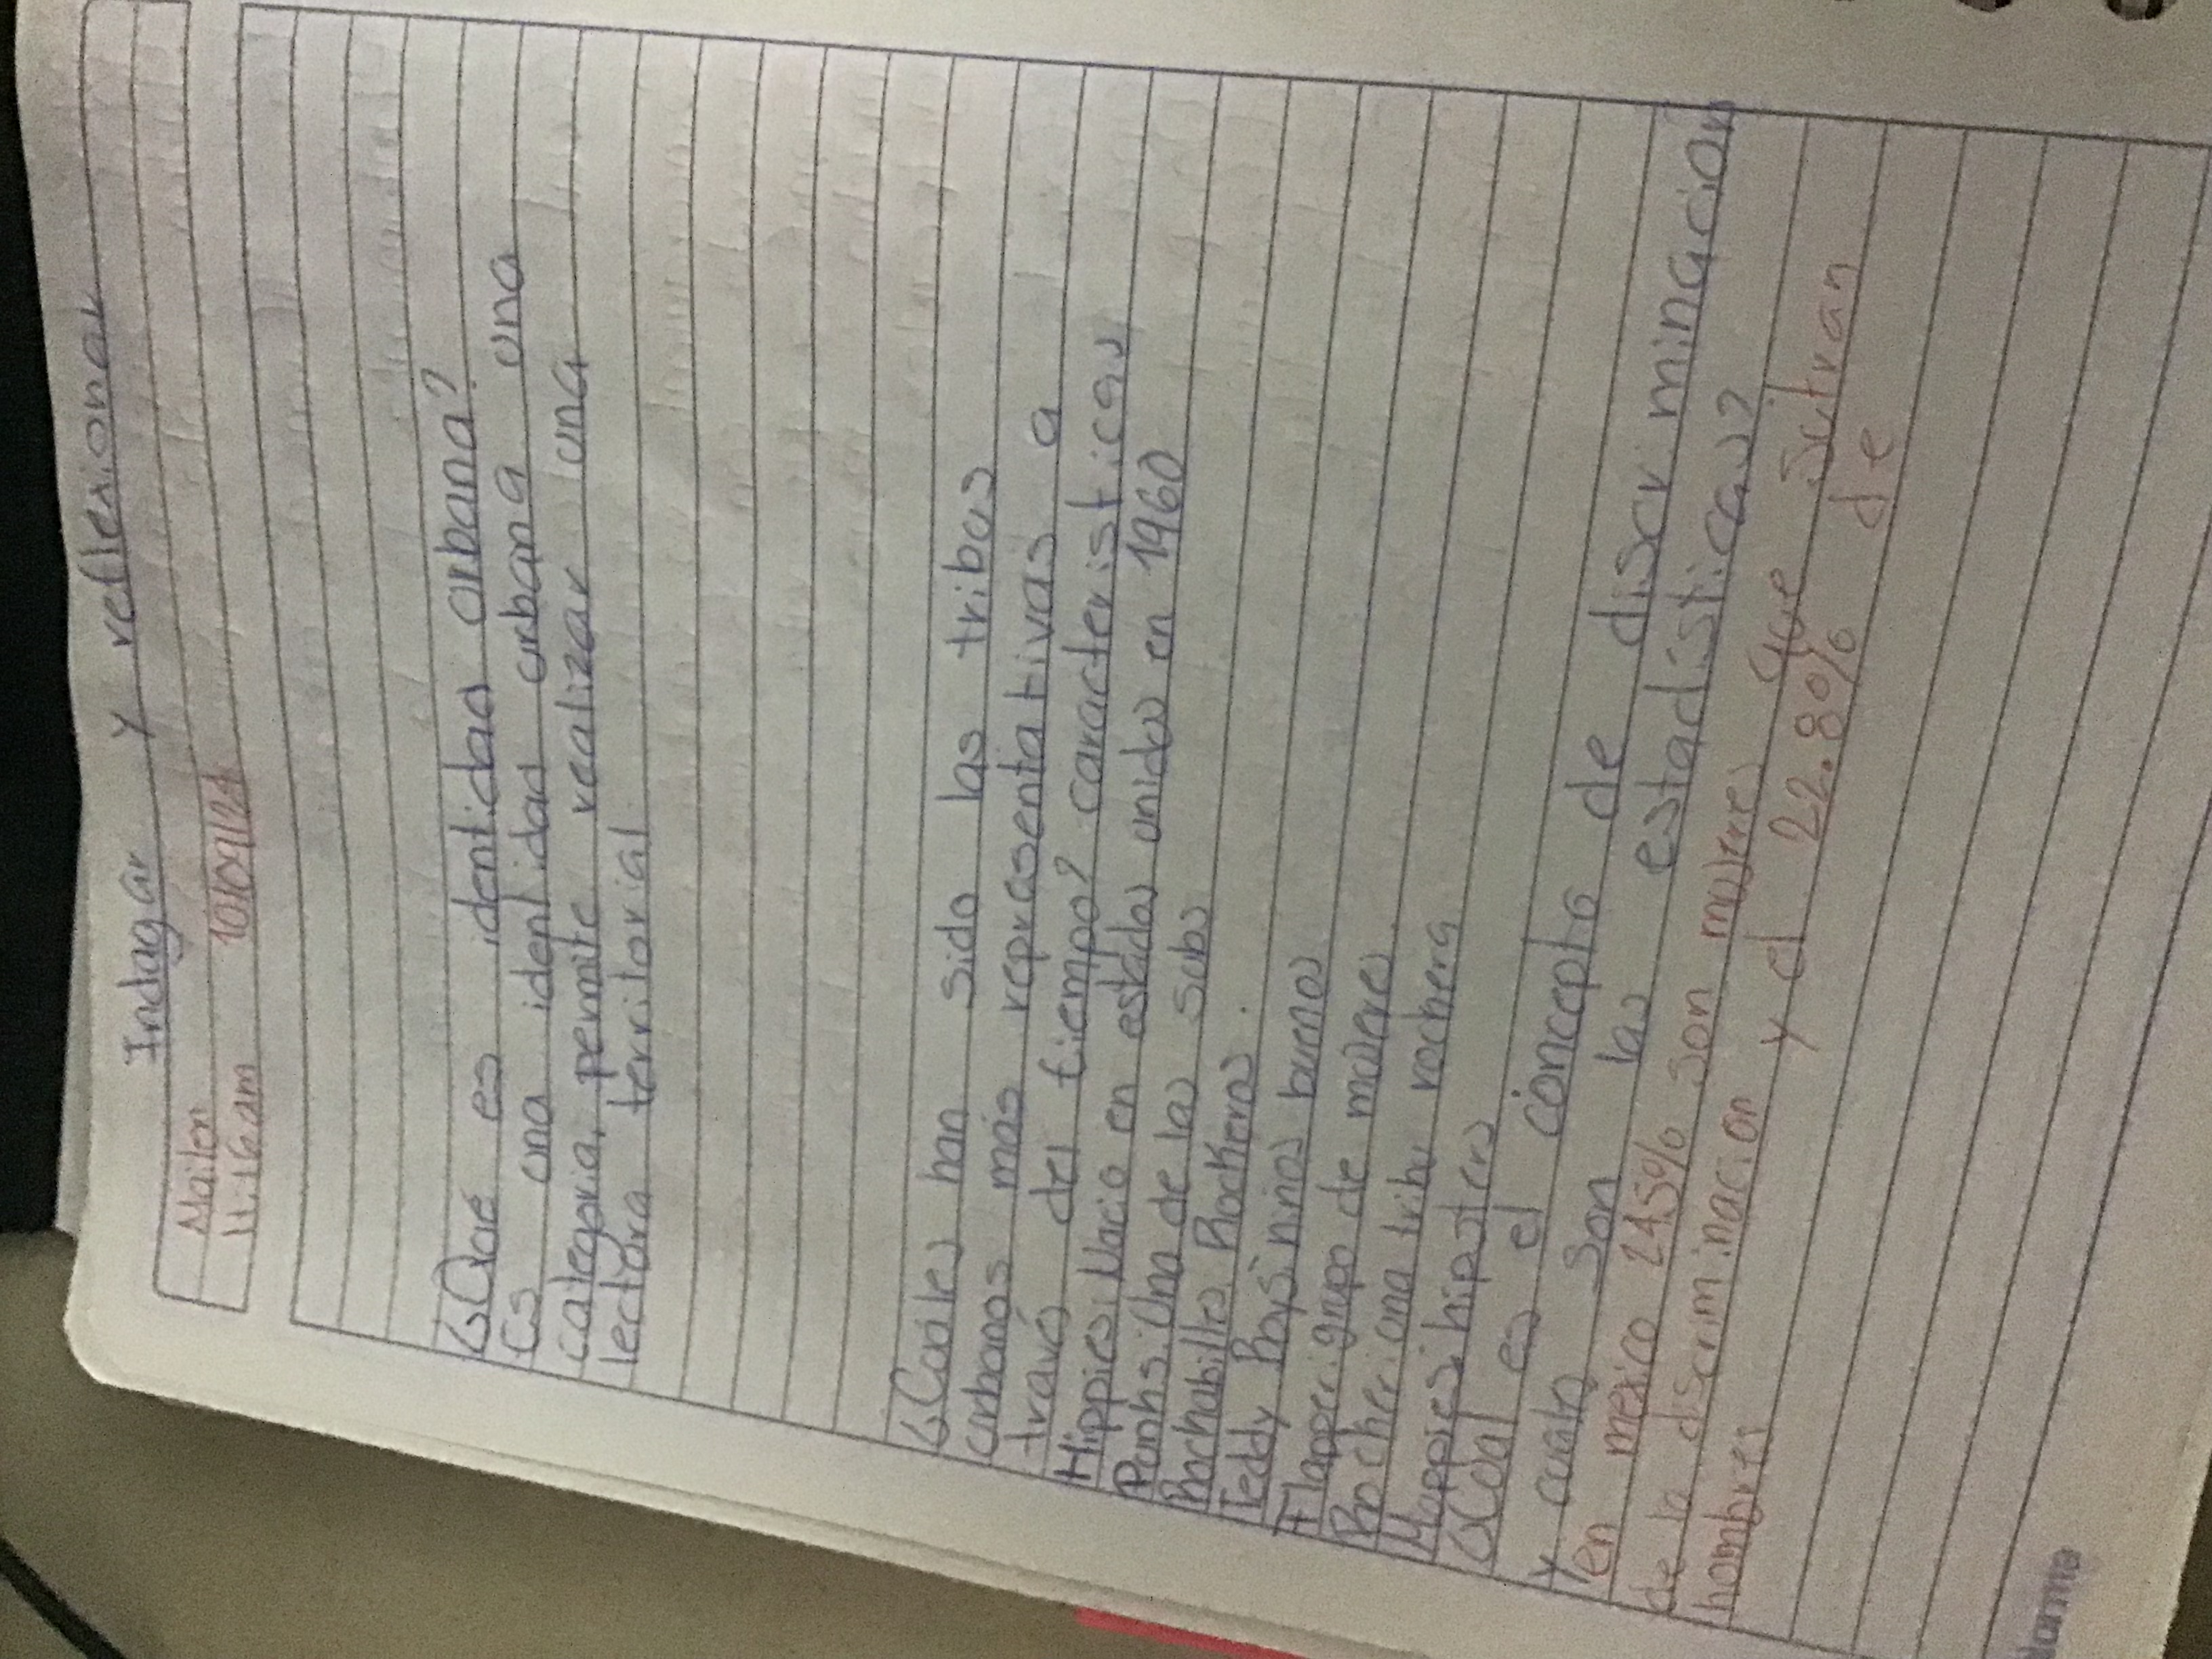 Indagar y reflexionar
Mailen 10/09/24
11:16am
¿Qué es identidad urbana?
Es una identidad urbana una
categoria, permite realizar una
lectura territorial.
¿Cuáles han sido las tribus
urbanas más reprasentativas a
través del tiempo? caracteristicas
Hippies: Nacio en estados unidos en 1960
Punks: Una de las subs
Rockabilles: Rockeros.
Teddy Boys: niños buenos
Flapper: grupo de mujeres.
Rocker: una tribu rockera
Yuppies: hipsters
¿Cual es el concepto de discriminación
y cuales son las estadísticas?
en mexico 24.5% son mujeres que sufran
de la discriminacion y el 22.80% de
hombres
Norma